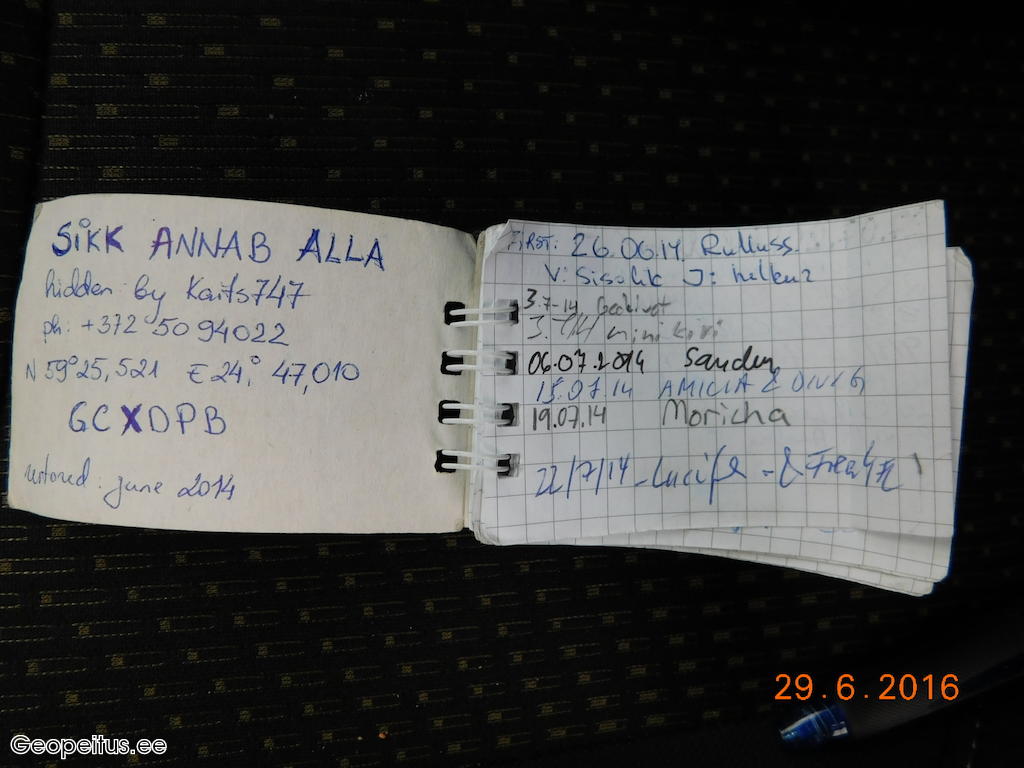 SiKK ANNAB ALLA
hidden by Kaits747
ph: +372 5094022
N 59°25,521 E 24° 47,010
GCXDPB
restored: june 2014
FIRST: 26.06.14 Rulluss
V: Sisalik J:
3.7-14
3.7.14 minikiri
06.07.2014 Sander
15.07.14
19.07.14 Moricha
22/7/14 - Lucifer - &
29.6.2016
Geopeitus.ee